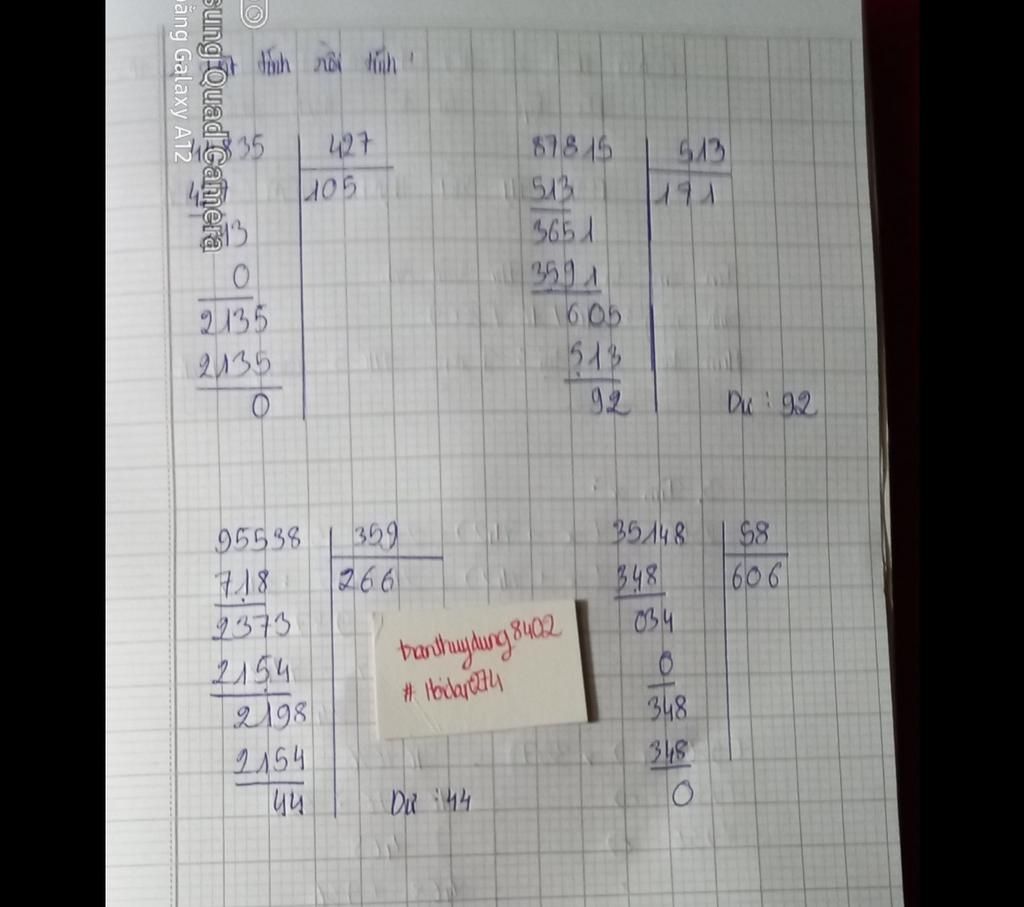 sung Quad Camera
ằng Galaxy A12
tính rồi tính :
44835 427
427 105
213
0
2135
2135
0
87815 513
513 171
3651
3591
605
513
92 Dư : 92
95538 359
718 266
2373
2154
2198
2154
44 Dư : 44
35148 58
348 606
034
0
348
348
0
tranthuydung8402